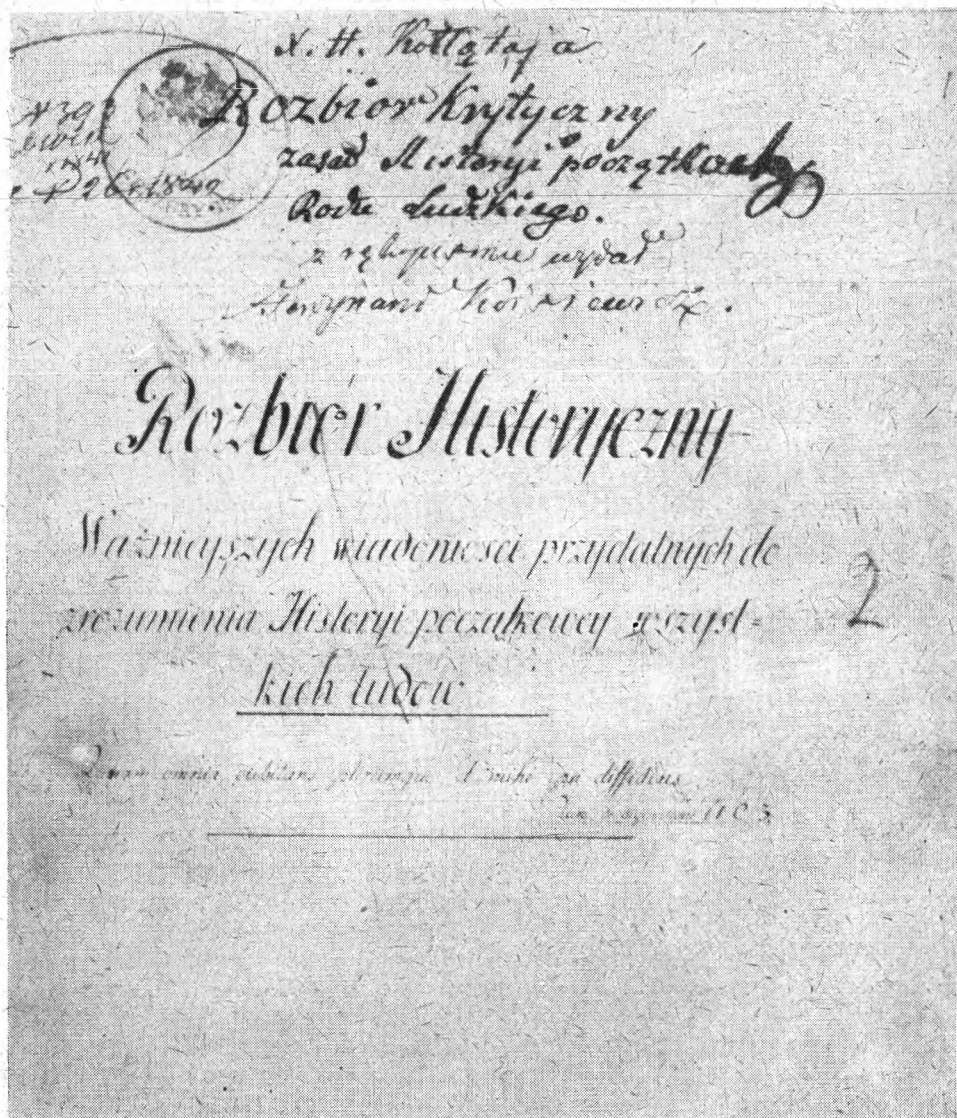 X. H. Kołłątaja
Rozbior Krytyczny
zasad Historyi początkach
Rodu Ludzkiego.
z rękopismu wydał
Ferdynand Kojsiewicz.
1842
Rozbiór Historyczny
Ważnieyszych wiadomości przydatnych do
zrozumienia Historyi początkowey wszyst=
kich ludów
2
omnia dubitans plerumque et mihi ipse diffidens
II C 3